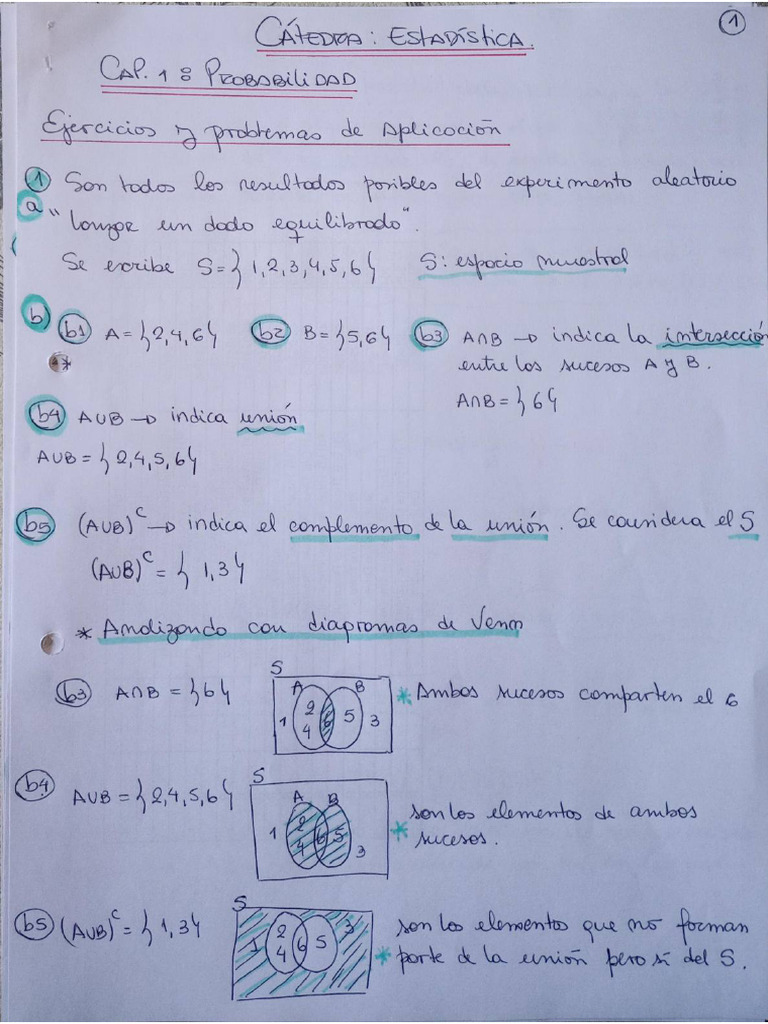 1
CÁTEDRA: ESTADÍSTICA.
CAP. 1: PROBABILIDAD
Ejercicios y problemas de Aplicación
1 Son todos los resultados posibles del experimento aleatorio
a "Lanzar un dado equilibrado".
Se escribe S={1,2,3,4,5,6} S: espacio muestral
b) b1 A={2,4,6} b2 B={5,6} b3 A∩B → indica la intersección
* entre los sucesos A y B.
A∩B={6}
b4 A∪B → indica unión
A∪B={2,4,5,6}
b5 (A∪B)^c → indica el complemento de la unión. Se considera el S
(A∪B)^c={1,3}
* Analizando con diagramas de Venn
b3 A∩B={6} S A B 1 2 4 6 5 3 * Ambos sucesos comparten el 6
b4 A∪B={2,4,5,6} S A B 1 2 4 6 5 3 * son los elementos de ambos
sucesos.
b5 (A∪B)^c={1,3} S 1 2 4 6 5 3 * son los elementos que no forman
parte de la unión pero sí del S.